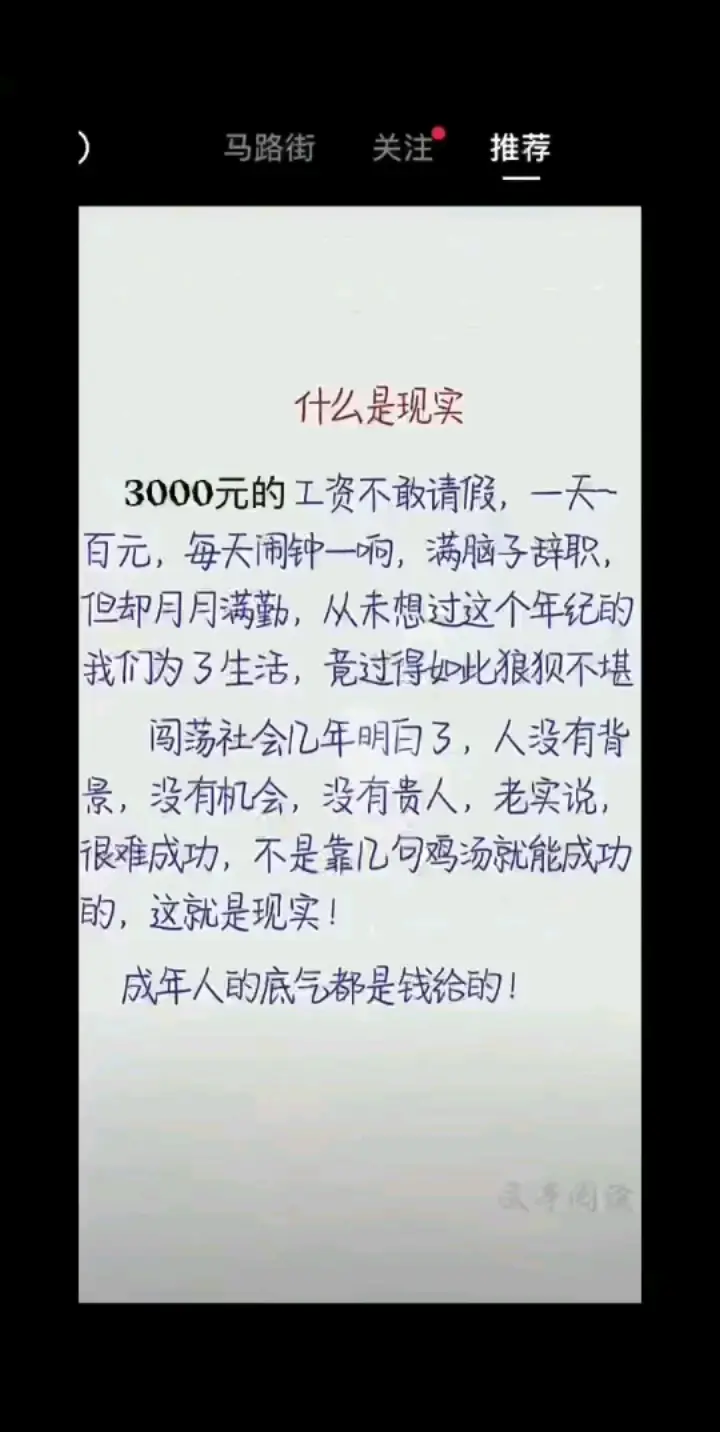 马路街 关注 推荐
什么是现实
3000元的工资不敢请假，一天一
百元，每天闹钟一响，满脑子辞职，
但却月月满勤，从未想过这个年纪的
我们为了生活，竟过得如此狼狈不堪
闯荡社会几年明白了，人没有背
景，没有机会，没有贵人，老实说，
很难成功，不是靠几句鸡汤就能成功
的，这就是现实！
成年人的底气都是钱给的！